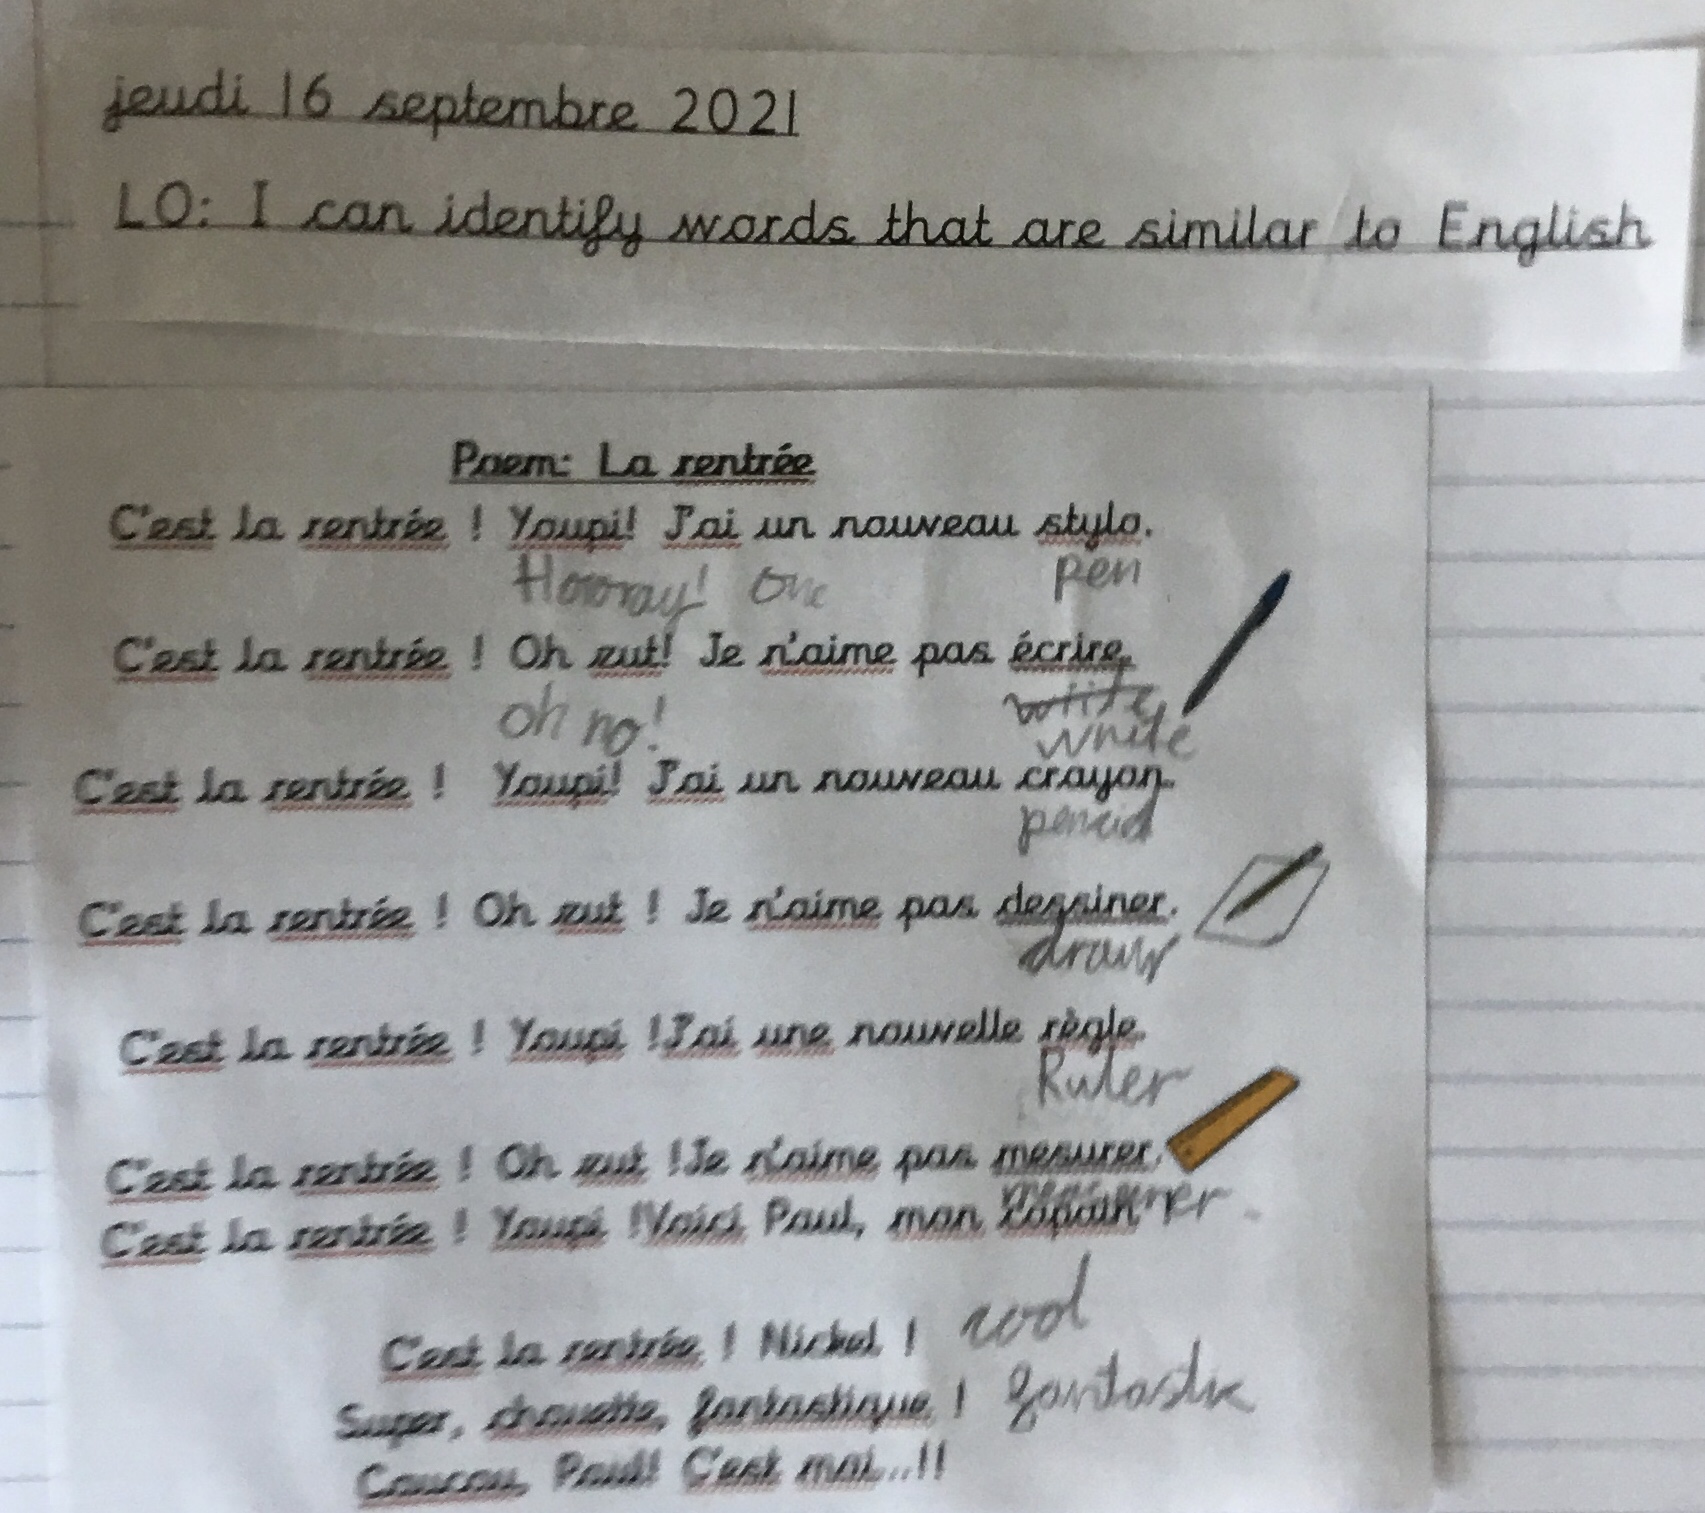 jeudi 16 septembre 2021
LO: I can identify words that are similar to English
Poem: La rentrée
C'est la rentrée ! Youpi! J'ai un nouveau stylo.
Hooray! One pen
C'est la rentrée ! Oh zut! Je n'aime pas écrire.
oh no! write
write
C'est la rentrée ! Youpi! J'ai un nouveau crayon.
pencil
C'est la rentrée ! Oh zut ! Je n'aime pas dessiner.
draw
C'est la rentrée ! Youpi !J'ai une nouvelle règle.
Ruler
C'est la rentrée ! Oh zut !Je n'aime pas mesurer.
C'est la rentrée ! Youpi !Voici Paul, mon copain
C'est la rentrée ! Nickel ! cool
Super, chouette, fantastique ! fantastic
Coucou, Paul! C'est moi...!!